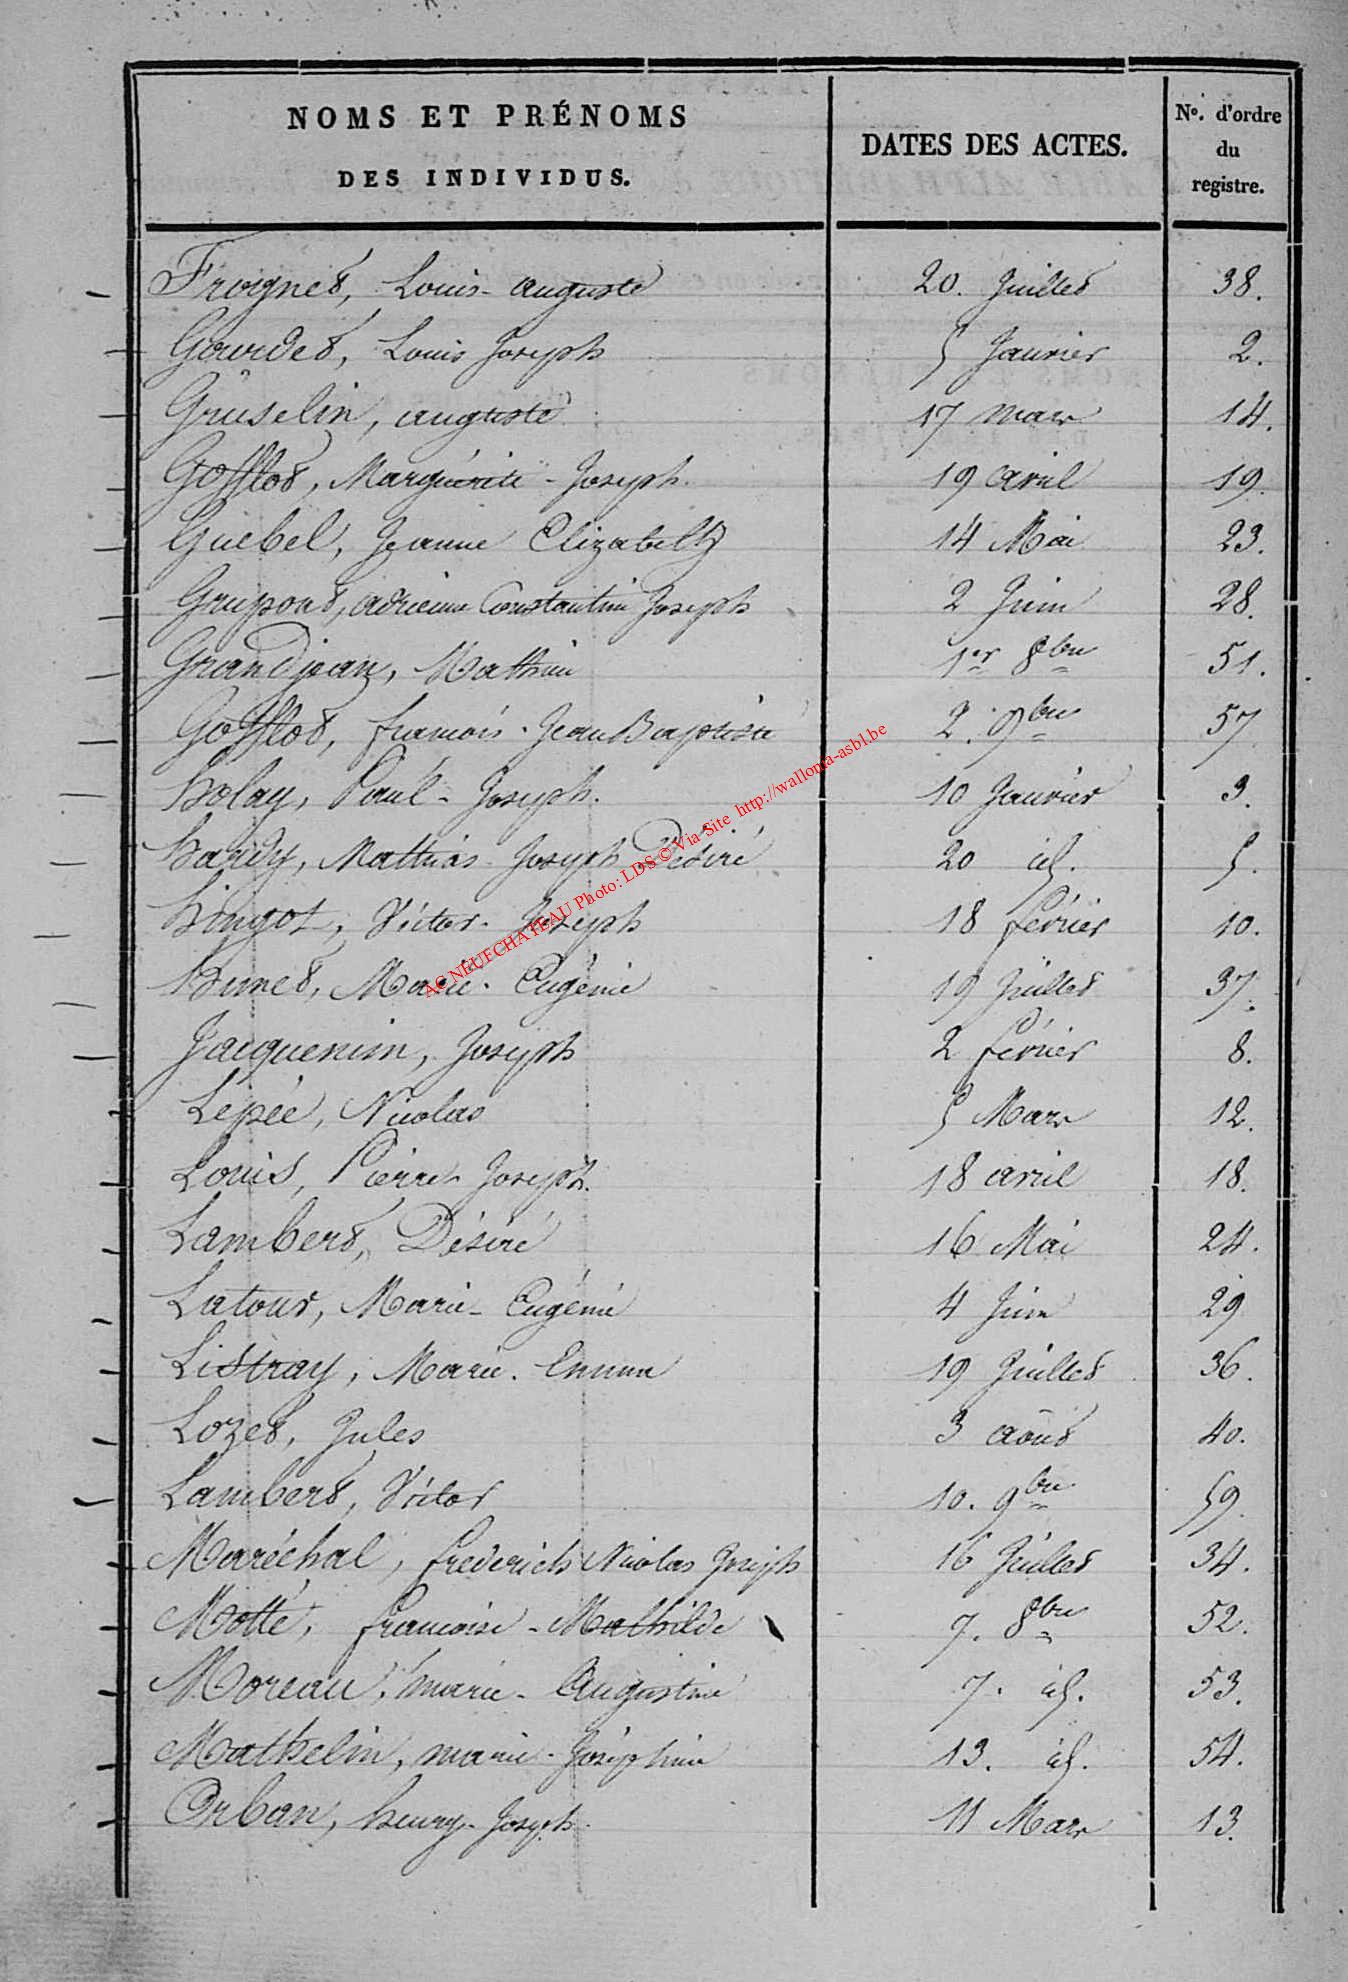 NOMS ET PRÉNOMS
DES INDIVIDUS.
DATES DES ACTES.
No. d'ordre
du
registre.
Froignet, Louis-auguste 20. Juillet 38.
Gourdet, Louis Joseph 5 Janvier 2.
Gruselin, auguste 17 mars 14.
Gofflot, Marguérite-Joseph. 19 avril 19.
Guebel, Jeanne Elizabeth 14 Mai 23.
Grupont, adrienne Constantine Joseph 2 Juin 28.
Grandjean, Mathieu 1er 8bre 51.
Gofflot, francois-Jean Baptiste 2. 9bre 57
Holay, Paul-Joseph. 10 Janvier 3.
Hardy, Mathias-Joseph Désiré 20 id. 5.
Hingot, Victor-Joseph 18 février 10.
Hunet, Marie-Eugénie 19 Juillet 37.
Jacquemin, Joseph 2 février 8.
Lepée, Nicolas 5 Mars 12.
Louis, Pierre-Joseph. 18 avril 18.
Lambert, Désiré 16 Mai 24.
Latour, Marie-Eugénie 4 Juin 29
Listray, Marie-Emma 19 Juillet 36.
Lozet, Jules 3 août 40.
Lambert, Victor 10. 9bre 59.
Maréchal, frederich Nicolas Joseph 16 Juillet 34.
Motte, francoise-Mathilde 7. 8bre 52.
Moreau, marie-Augustine 7. id. 53.
Mathelin, marie-Joséphine 13. id. 54.
Orban, henry-Joseph. 11 Mars 13.
AC NEUFCHATEAU Photo: LDS © Via Site http://wallonia-asbl.be